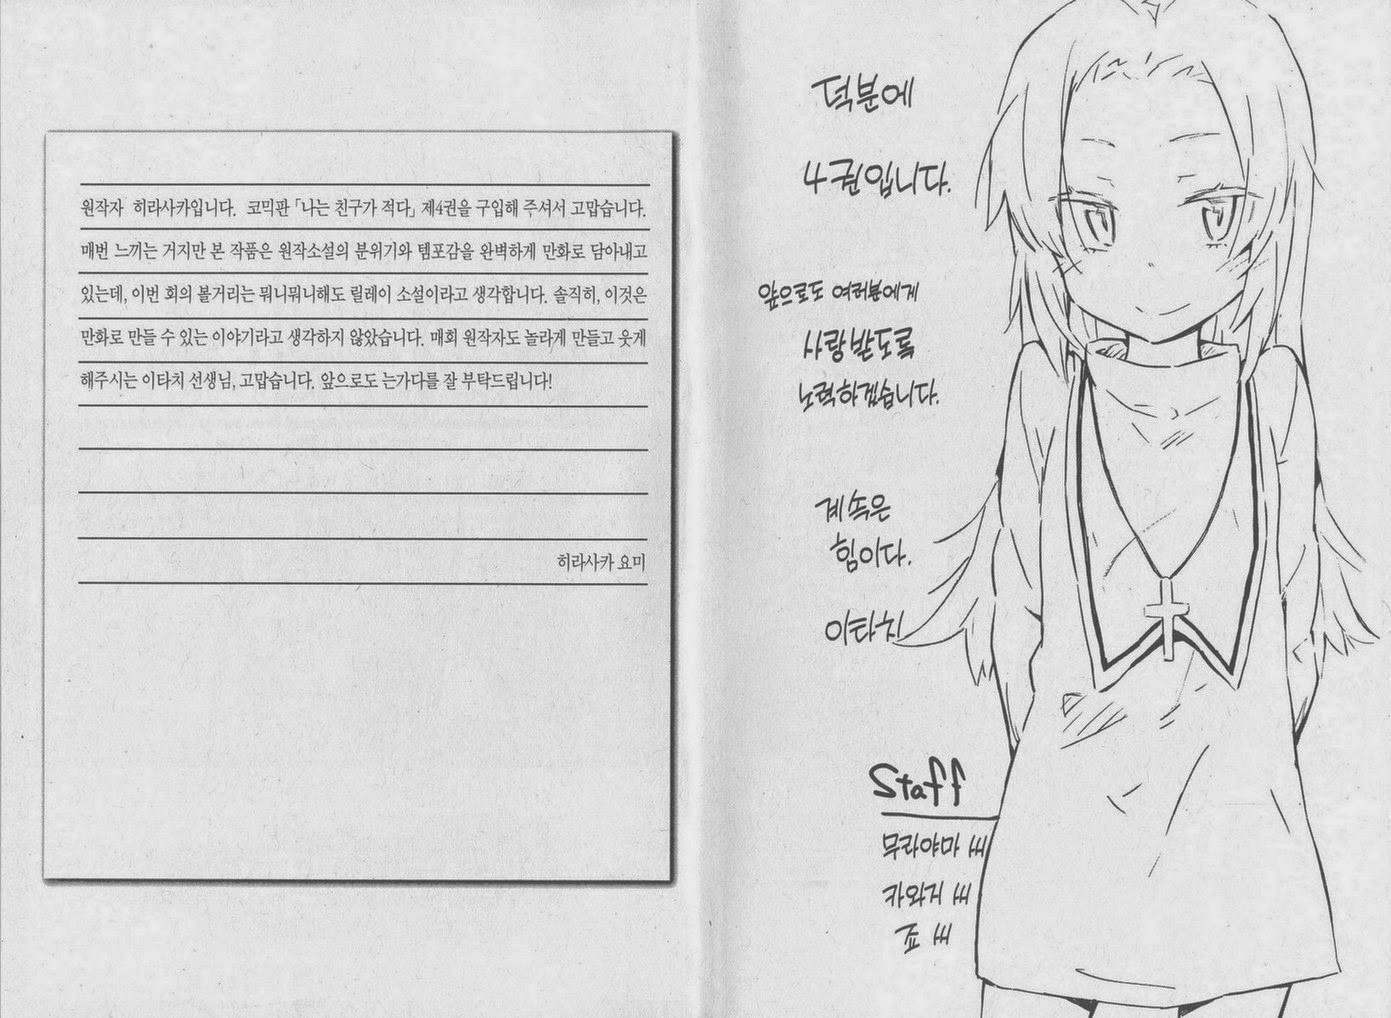 원작자 히라사카입니다. 코믹판 「나는 친구가 적다」 제4권을 구입해 주셔서 고맙습니다.
매번 느끼는 거지만 본 작품은 원작소설의 분위기와 템포감을 완벽하게 만화로 담아내고
있는데, 이번 회의 볼거리는 뭐니뭐니해도 릴레이 소설이라고 생각합니다. 솔직히, 이것은
만화로 만들 수 있는 이야기라고 생각하지 않았습니다. 매회 원작자도 놀라게 만들고 웃게
해주시는 이타치 선생님, 고맙습니다. 앞으로도 는가다를 잘 부탁드립니다!
히라사카 요미
덕분에
4권입니다.
앞으로도 여러분에게
사랑받도록
노력하겠습니다.
계속은
힘이다.
이타치
Staff
무라야마 씨
카와거 씨
죠 씨